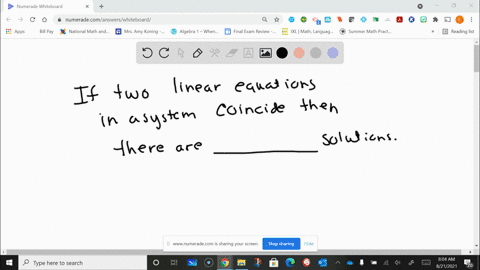 Numerade Whiteboard
numerade.com/answers/whiteboard/
Apps
Bill Pay
National Math and...
Mrs. Amy Konnig -...
Algebra 1 – When...
Final Exam Review -...
IXL | Math, Languag...
Summer Math Pract...
Reading list
If two linear equations
in a system coincide then
there are __________ solutions.
www.numerade.com is sharing your screen.
Stop sharing
Hide
Type here to search
8:04 AM
8/21/2021